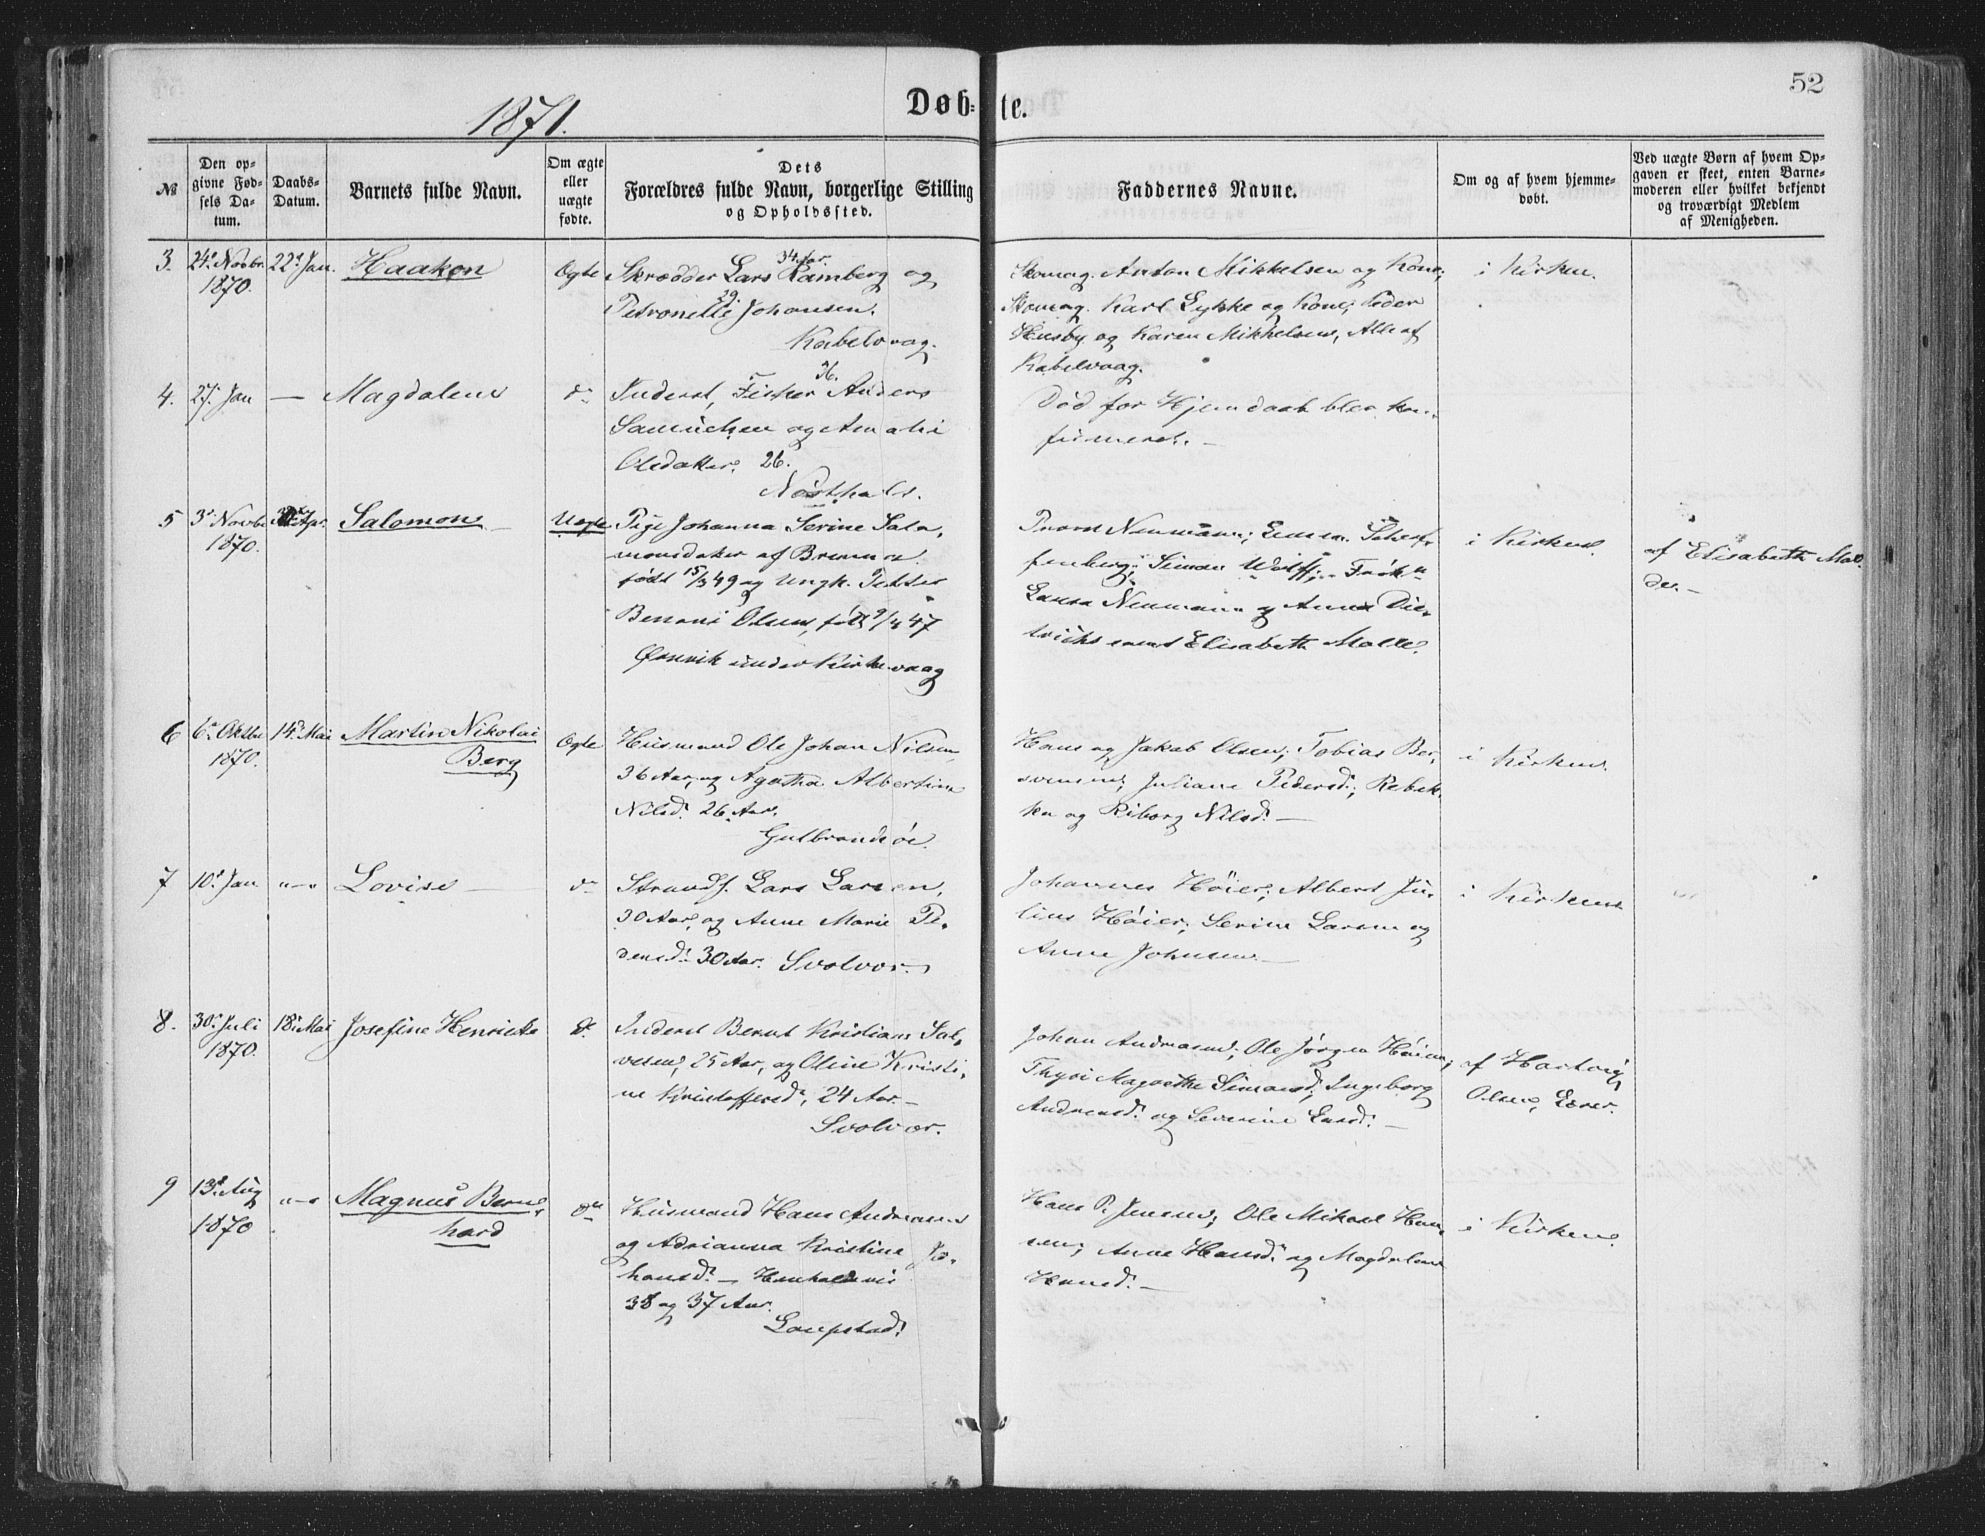 1871.
Døb-te.
52
№
Den op-
givne Fød-
sels Da-
tum.
Daabs-
Datum.
Barnets fulde Navn.
Om ægte
eller
uægte
fødte.
Dets
Forældres fulde Navn, borgerlige Stilling
og Opholdssted.
Faddernes Navne.
Om og af hvem hjemme-
døbt.
Ved uægte Børn af hvem Op-
gaven er skeet, enten Barne-
moderen eller hvilket bekjendt
og troværdigt Medlem
af Menigheden.
3.
24de Novbr.
1870.
22de Jan.
Haakon
Ægte
34 Aar.
Skrædder Lars Ramberg og
29
Petronelle Johansen.
Kabelvaag.
Skomag. Anton Mikkelsen og Kone;
Skomag. Karl Lykke og Kone; Peder
Husby og Karen Mikkelsen, Alle af
Kabelvaag.
i Kirken.
4.
27. Jan
—
Magdalene
do
36.
Inderst, Fisker Anders
Samuelsen og Amalie
Olsdatter. 26.
Død før Hjemdaab blev kon-
firmeret. —
5
3die Novbr
1870.
Salomon —
Uægte
Pige Johanna Serine Salo-
monsdatter af Bremnæs
født 15/3 49 og Ungk. Petter
Benoni Olsen, født 9/4 47
Ørsvik under Kirkevaag
Neumann; Emma Scherf-
fenberg; Simon Wolff; Frøkn
Laura Neumann og Anna Die-
trichs samt Elisabeth Molle.
i Kirken.
af Elisabeth Mol-
de. —
6
6te Oktbr
1870.
14de Mai
Martin Nikolai
Berg
Ægte
Husmand Ole Johan Nilsen,
36 Aar, og Agatha Albertine
Nilsd. 26 Aar.
Gulbrandsøe.
Hans og Jakob Olsen; Tobias Ber-
svensen; Juliane Pedersd.; Rebek-
ka og Riborg Nilsd. —
i Kirken.
7
10de Jan
"—"
Lovise —
do
Strands. Lars Larsen,
30 Aar, og Anne Marie Pe-
dersd. 30 Aar. Svolvær.
Johannes Høier; Albert Ju-
lius Høier; Serine Larsen og
Anne Johnsen. —
i Kirken
8.
30. Juli
1870.
18. Mai
Josefine Henriette
do
Inderst Bernt Kristian Sal-
vesen, 25 Aar, og Oline Kristi-
ne Kristoffersd., 24 Aar. —
Svolvær.
Johan Andreasen; Ole Jørgen Høier;
Thyri Magrethe Simonsd; Ingeborg
Andreasd. og Severine Larsd. —
af Hartvig
Olsen, Lærer.
9
13de Aug
1870
"—"
Magnus Bern-
hard
do
Husmand Hans Andreasen
og Adrianna Kristine Jo-
hansd. — Henholdsvis
38 og 37 Aar.
Laupstad.
Hans P. Jensen; Ole Mikael Han-
sen; Anne Hansd. og Magdalene
Hansd. —
i Kirken.